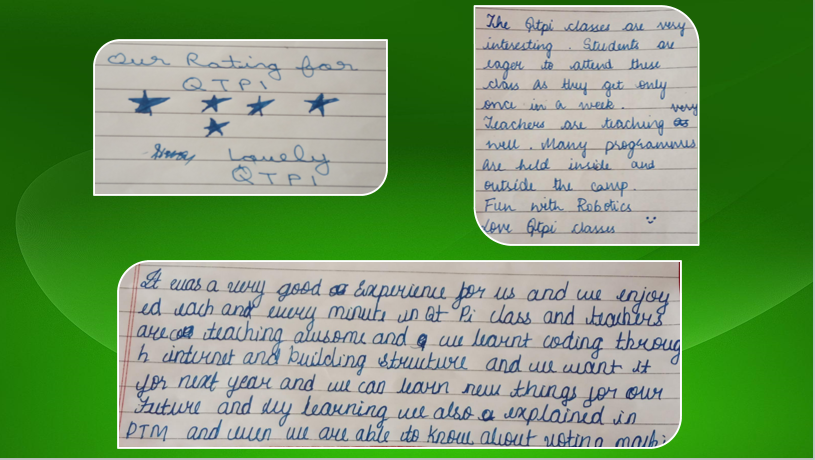 Our Rating for
QTPI
Lovely
QTPI
The Qtpi classes are very
interesting. Students are
eager to attend these
class as they get only
once in a week.
Teachers are teaching very
well. Many programmes
are held inside and
outside the camp.
Fun with Robotics
Love Qtpi classes
It was a very good Experience for us and we enjoy
ed each and every minute in Qt Pi class and teachers
are teaching awsome and we learnt coding throug
h internet and building structure and we want it
for next year and we can learn new things for our
Future and by learning we also explained in
PTM and even we are able to know about voting machi